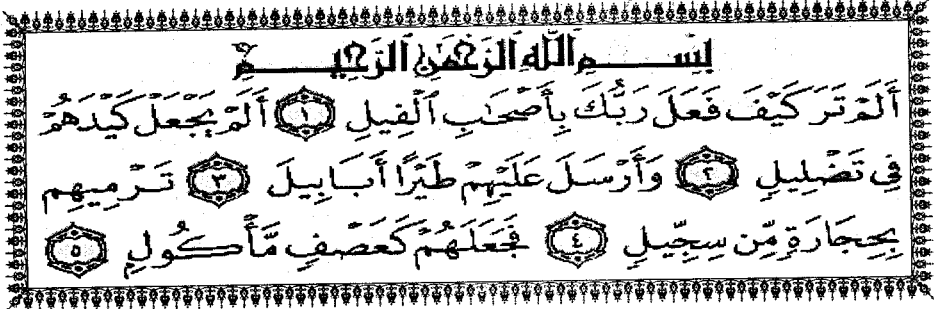 بِسْمِ ٱللَّهِ ٱلرَّحْمَٰنِ ٱلرَّحِيمِ
أَلَمْ تَرَ كَيْفَ فَعَلَ رَبُّكَ بِأَصْحَٰبِ ٱلْفِيلِ ١ أَلَمْ يَجْعَلْ كَيْدَهُمْ
فِي تَضْلِيلٍ ٢ وَأَرْسَلَ عَلَيْهِمْ طَيْرًا أَبَابِيلَ ٣ تَرْمِيهِم
بِحِجَارَةٍ مِّن سِجِّيلٍ ٤ فَجَعَلَهُمْ كَعَصْفٍ مَّأْكُولٍ ٥